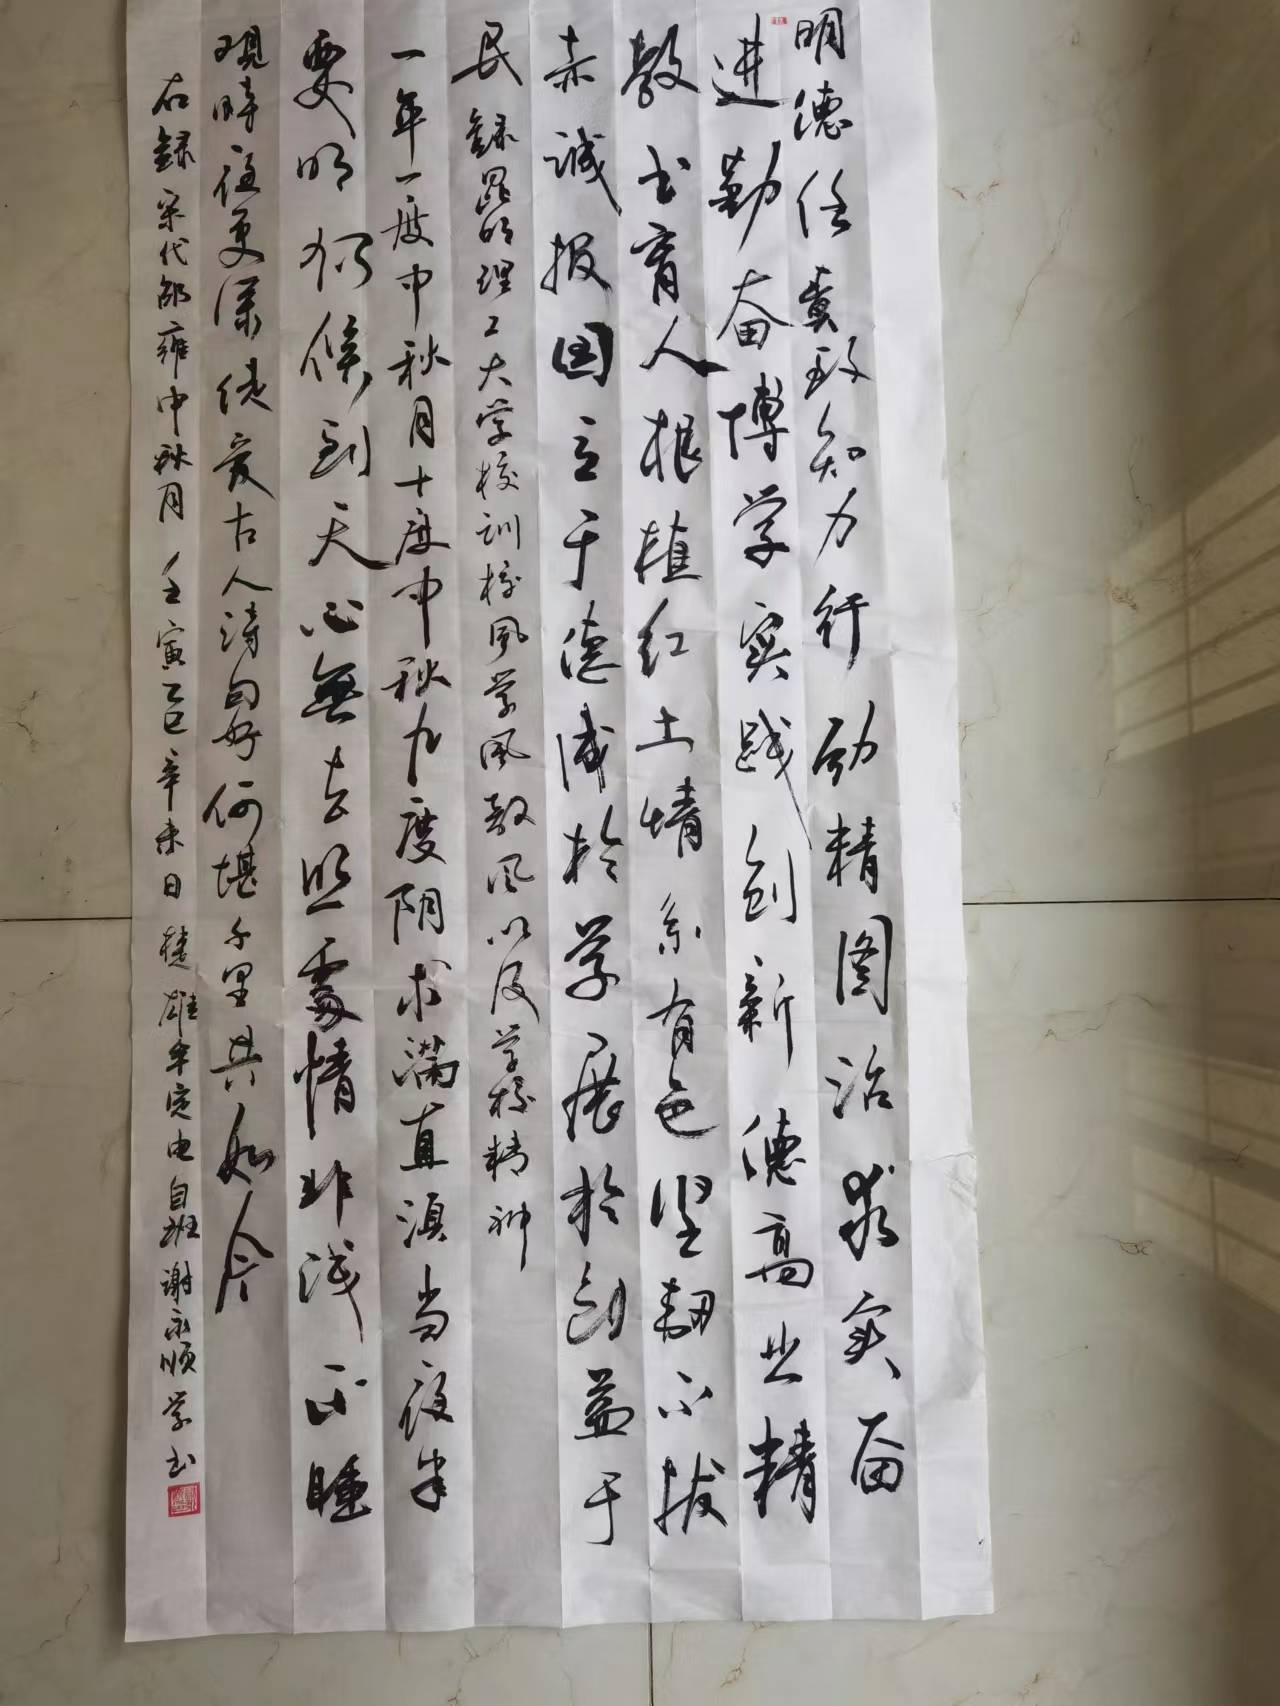 明德任责致知力行励精图治求实奋
进勤奋博学实践创新德高业精
教书育人根植红土情系有色坚韧不拔
赤诚报国立于德成於学展於创益于
民 録昆明理工大学校训校风学风教风以及学校精神
一年一度中秋月十度中秋九度阴求满直须当夜半
要明仍候到天心無云照處情非浅不睡
观時意更深徒爱古人清句好何堪千里共如今
右録宋代邵雍中秋月 壬寅己巳辛未日 楚雄牟定电自班谢永顺学书